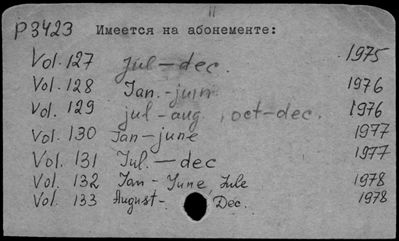 P3423 Имеется на абонементе:
Vol. 127 Jul-dec. 1975
Vol. 128 Jan.-juin 1976
Vol. 129 jul-aug., oct-dec. 1976
Vol. 130 Jan-june 1977
Vol. 131 Jul.-dec 1977
Vol. 132 Jan-June, Jule 1978
Vol. 133 August- Dec. 1978